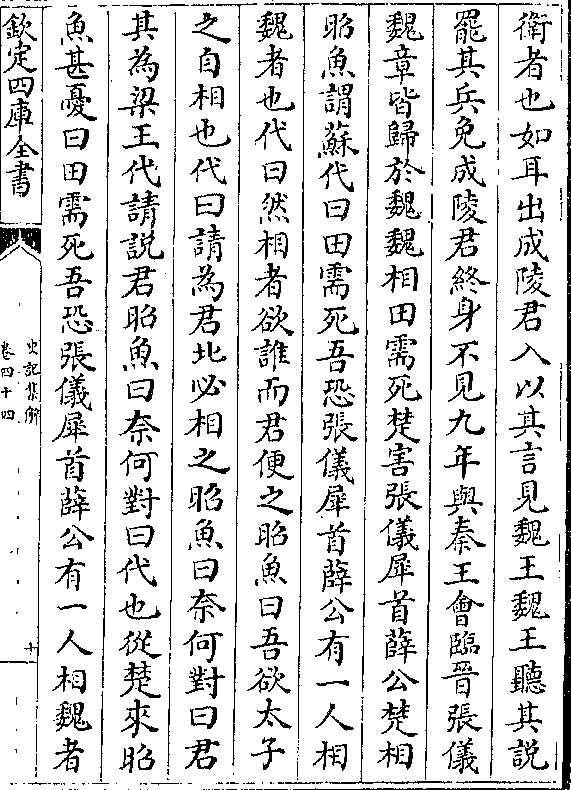 衛者也如耳出成陵君入以其言見魏王魏王聽其説
罷其兵免成陵君終身不見九年與秦王會臨晉張儀
魏章皆歸於魏魏相田需死楚害張儀犀首薛公楚相
昭魚謂蘇代曰田需死吾恐張儀犀首薛公有一人相
魏者也代曰然相者欲誰而君便之昭魚曰吾欲太子
之自相也代曰請為君北必相之昭魚曰奈何對曰君
其為梁王代請説君昭魚曰奈何對曰代也從楚來昭
魚甚憂曰田需死吾恐張儀犀首薛公有一人相魏者
欽定四庫全書
史記集解
卷四十四
十